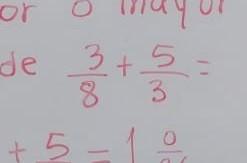 or o mayor
de 3/8 + 5/3 =
+ 5 = 1 0